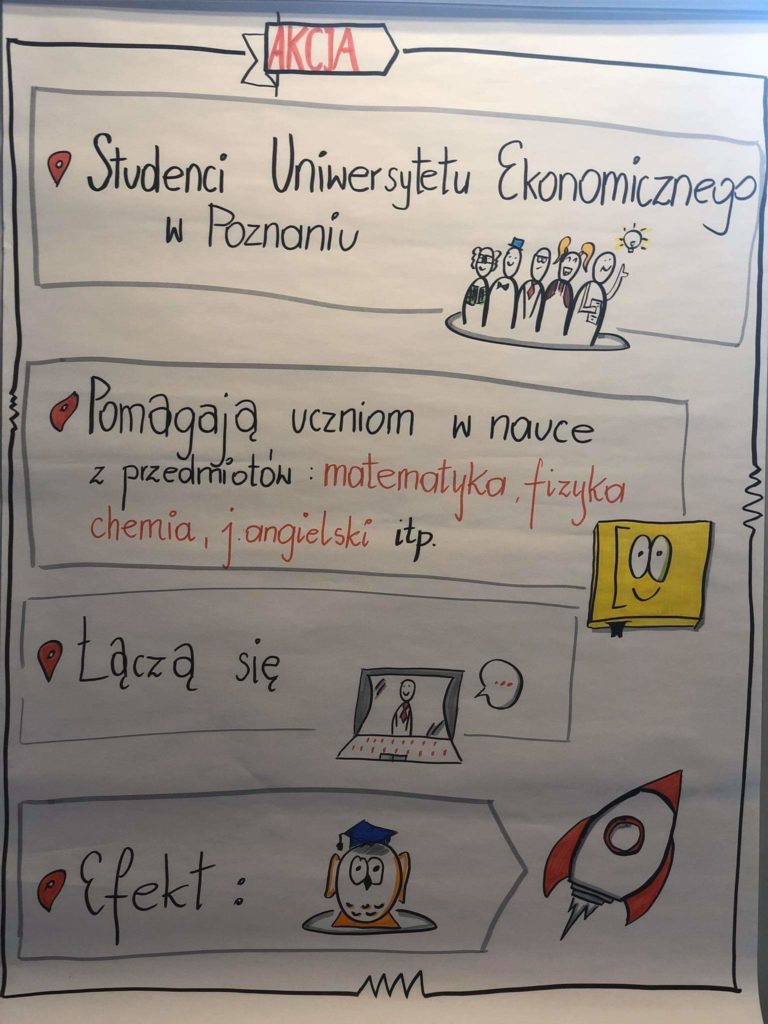 AKCJA
Studenci Uniwersytetu Ekonomicznego
w Poznaniu
Pomagają uczniom w nauce
z przedmiotów : matematyka, fizyka
chemia, j. angielski itp.
Łączą się
Efekt :